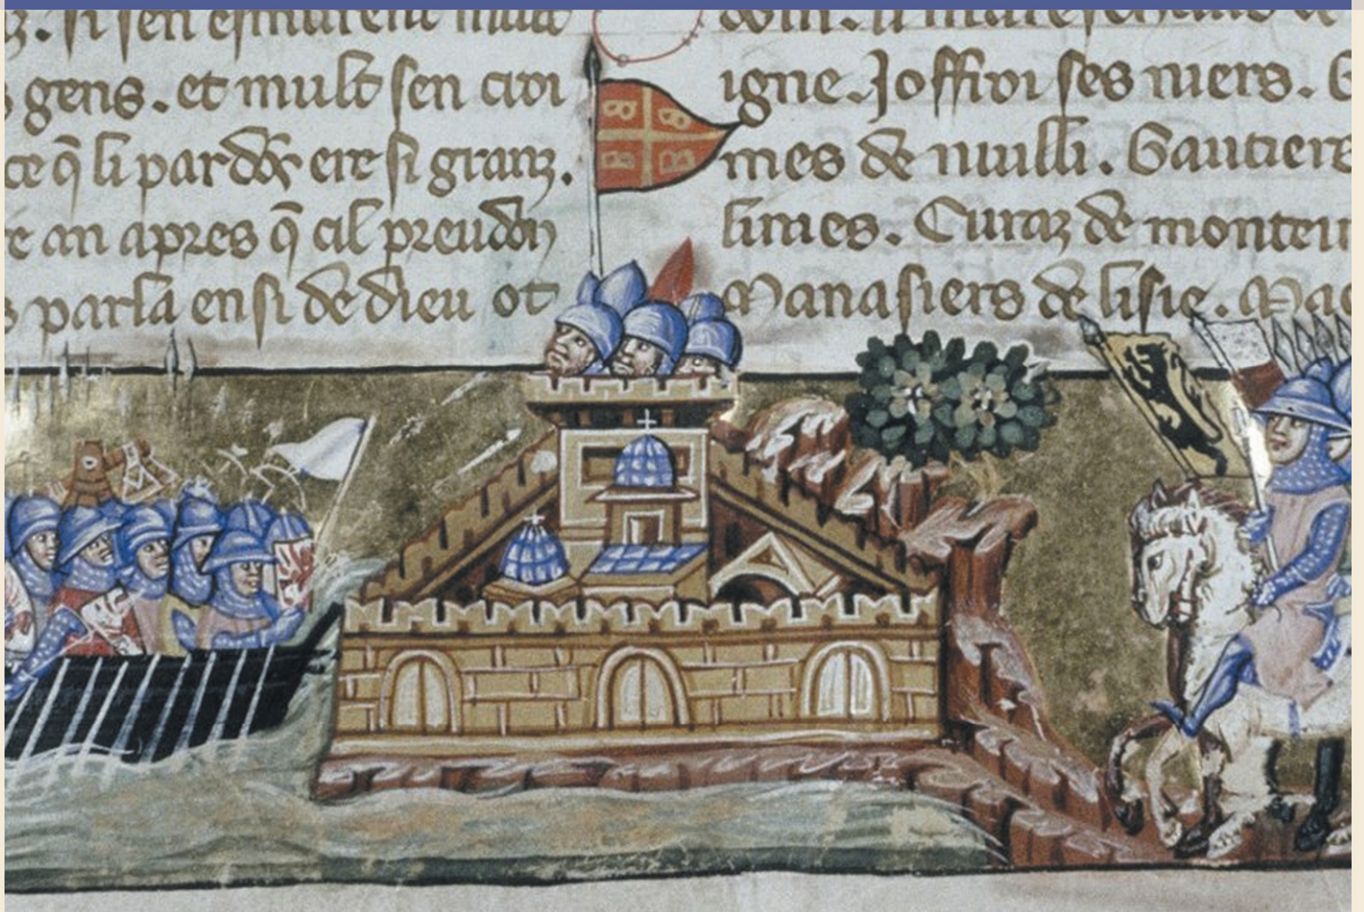 z. si sen esmurent mult
s gens. et mult sen croi
ce q̄ li pardōs ere si granz.
re an apres q̄ cil preudom
s parla ensi de dieu ot
dom. li mareschaus de
igne. Joffroi ses niers. G
mes de nuilli. Gautiers
limes. Curaz de monteu
Manasiers de lisle. Mac
B B
B B